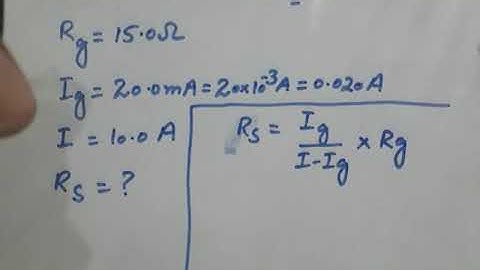 Rg = 15.0Ω
Ig = 20.0mA = 20×10⁻³A = 0.020A
I = 10.0 A
Rs = ?
Rs = Ig / I-Ig × Rg